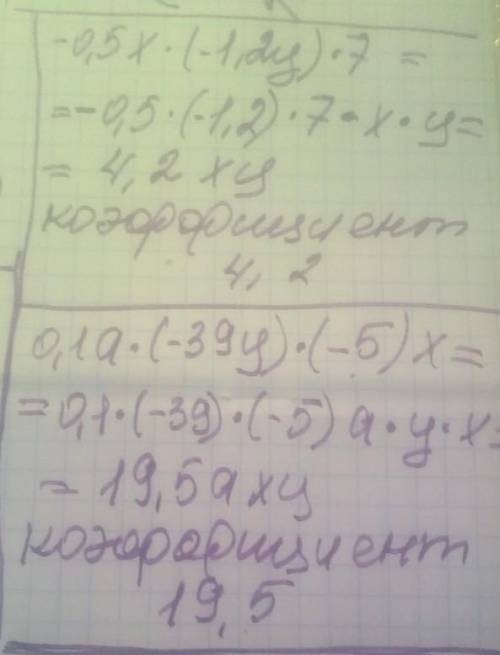 -0,5x·(-1,2y)·7 =
=-0,5·(-1,2)·7·x·y=
= 4,2 xy
коэффициент
4,2
0,1a·(-39y)·(-5)x=
=0,1·(-39)·(-5)a·y·x=
= 19,5axy
коэффициент
19,5